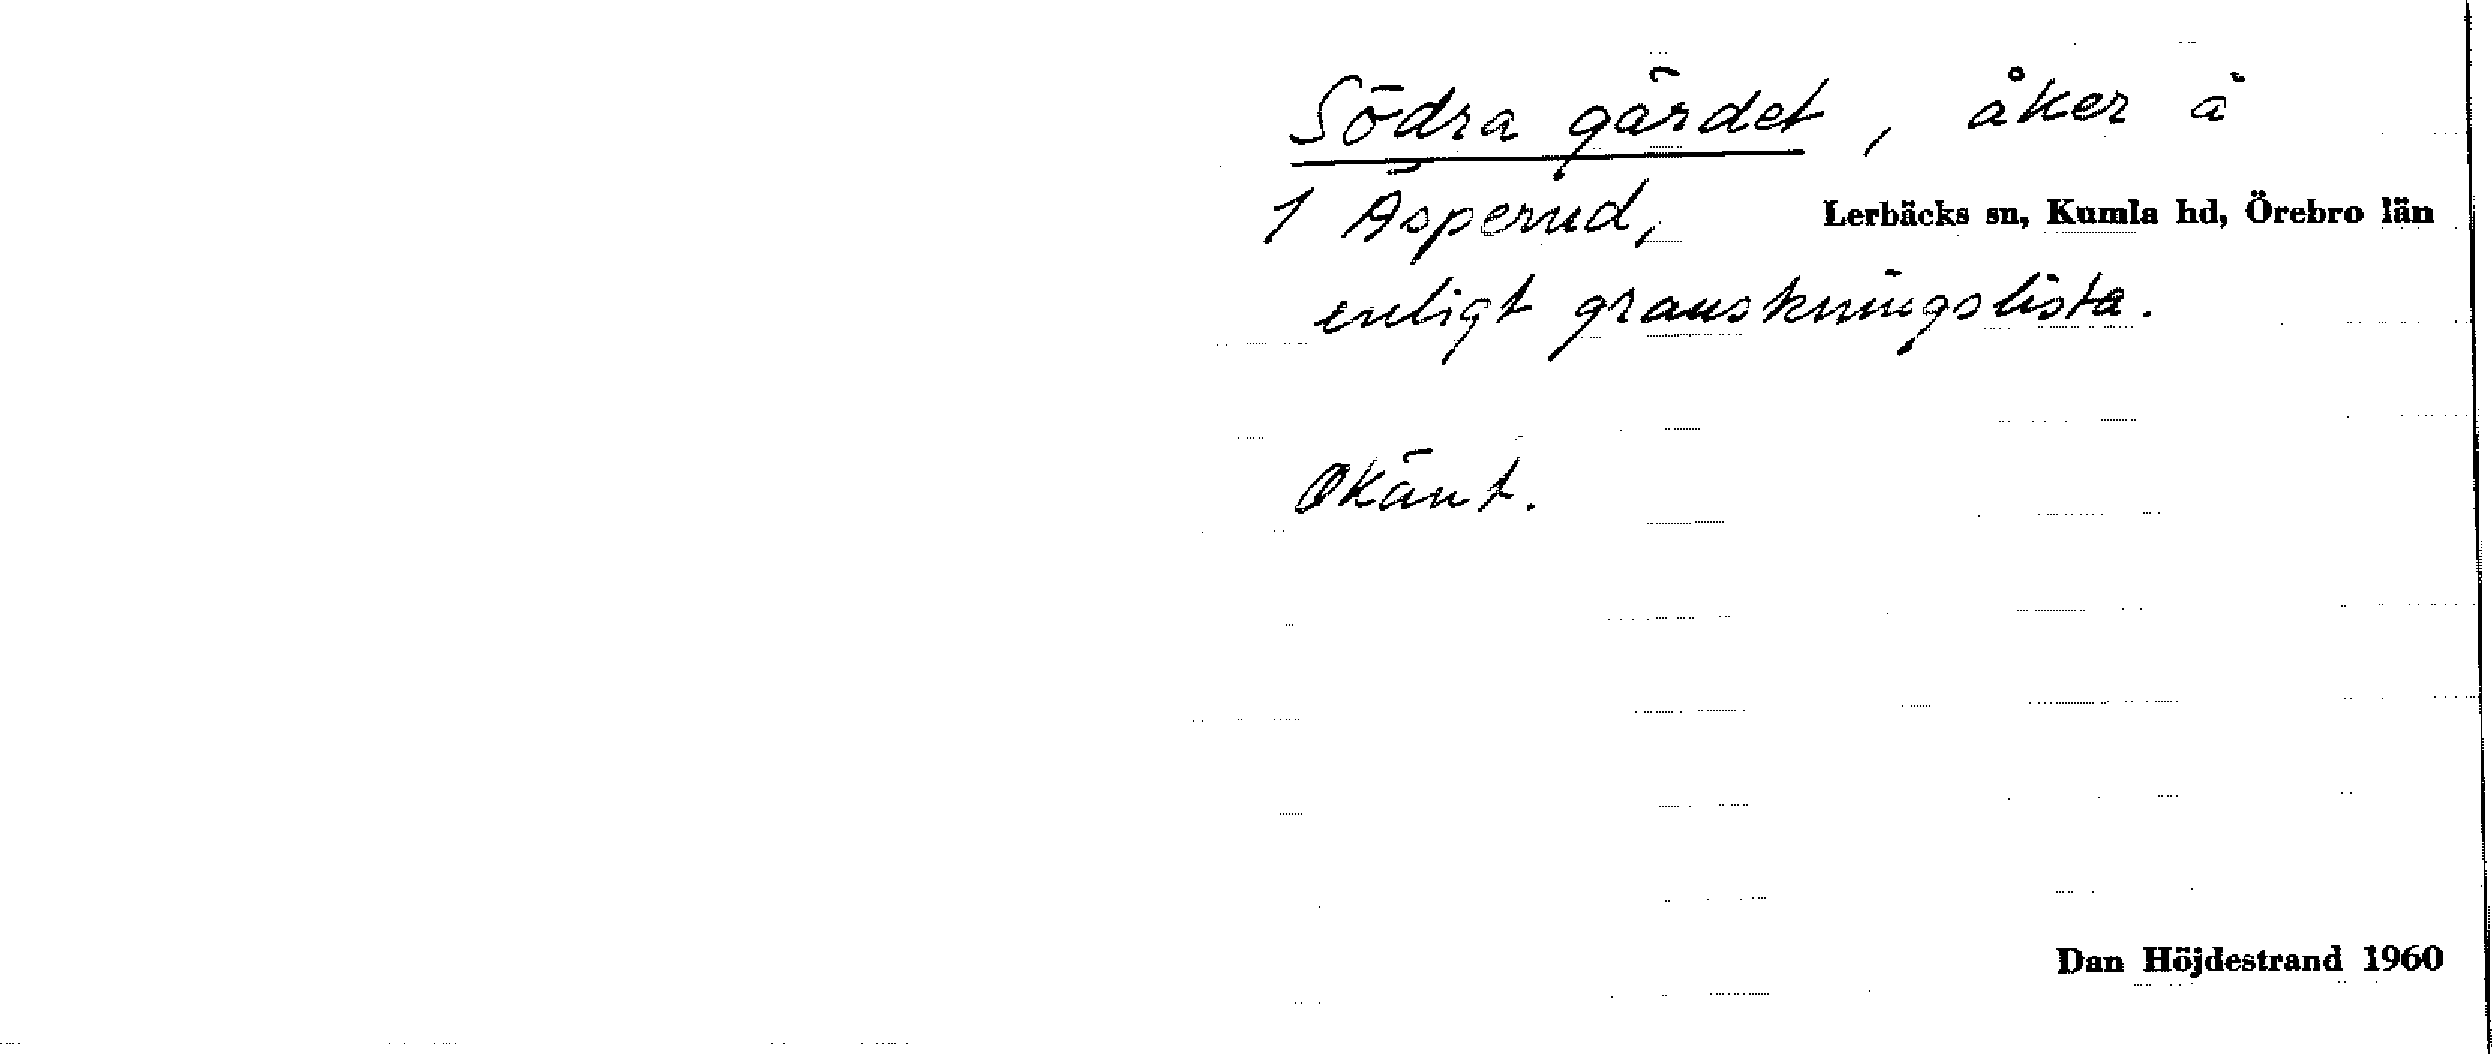 Södra gärdet, åker å
1 Äsperud, Lerbäcks sn, Kumla hd, Örebro län
enligt granskningslista.
Okänt.
Dan Höjdestrand 1960